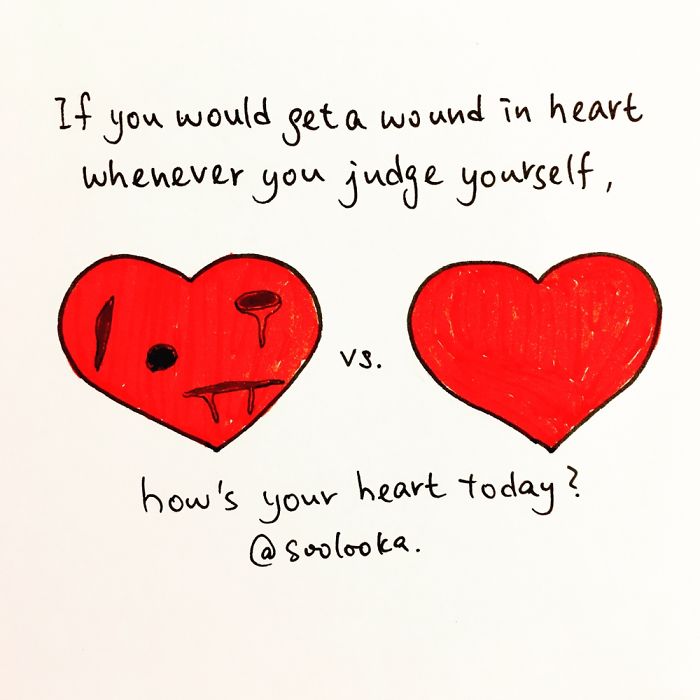 If you would get a wound in heart
whenever you judge yourself,
vs.
how's your heart today?
@soolooka.